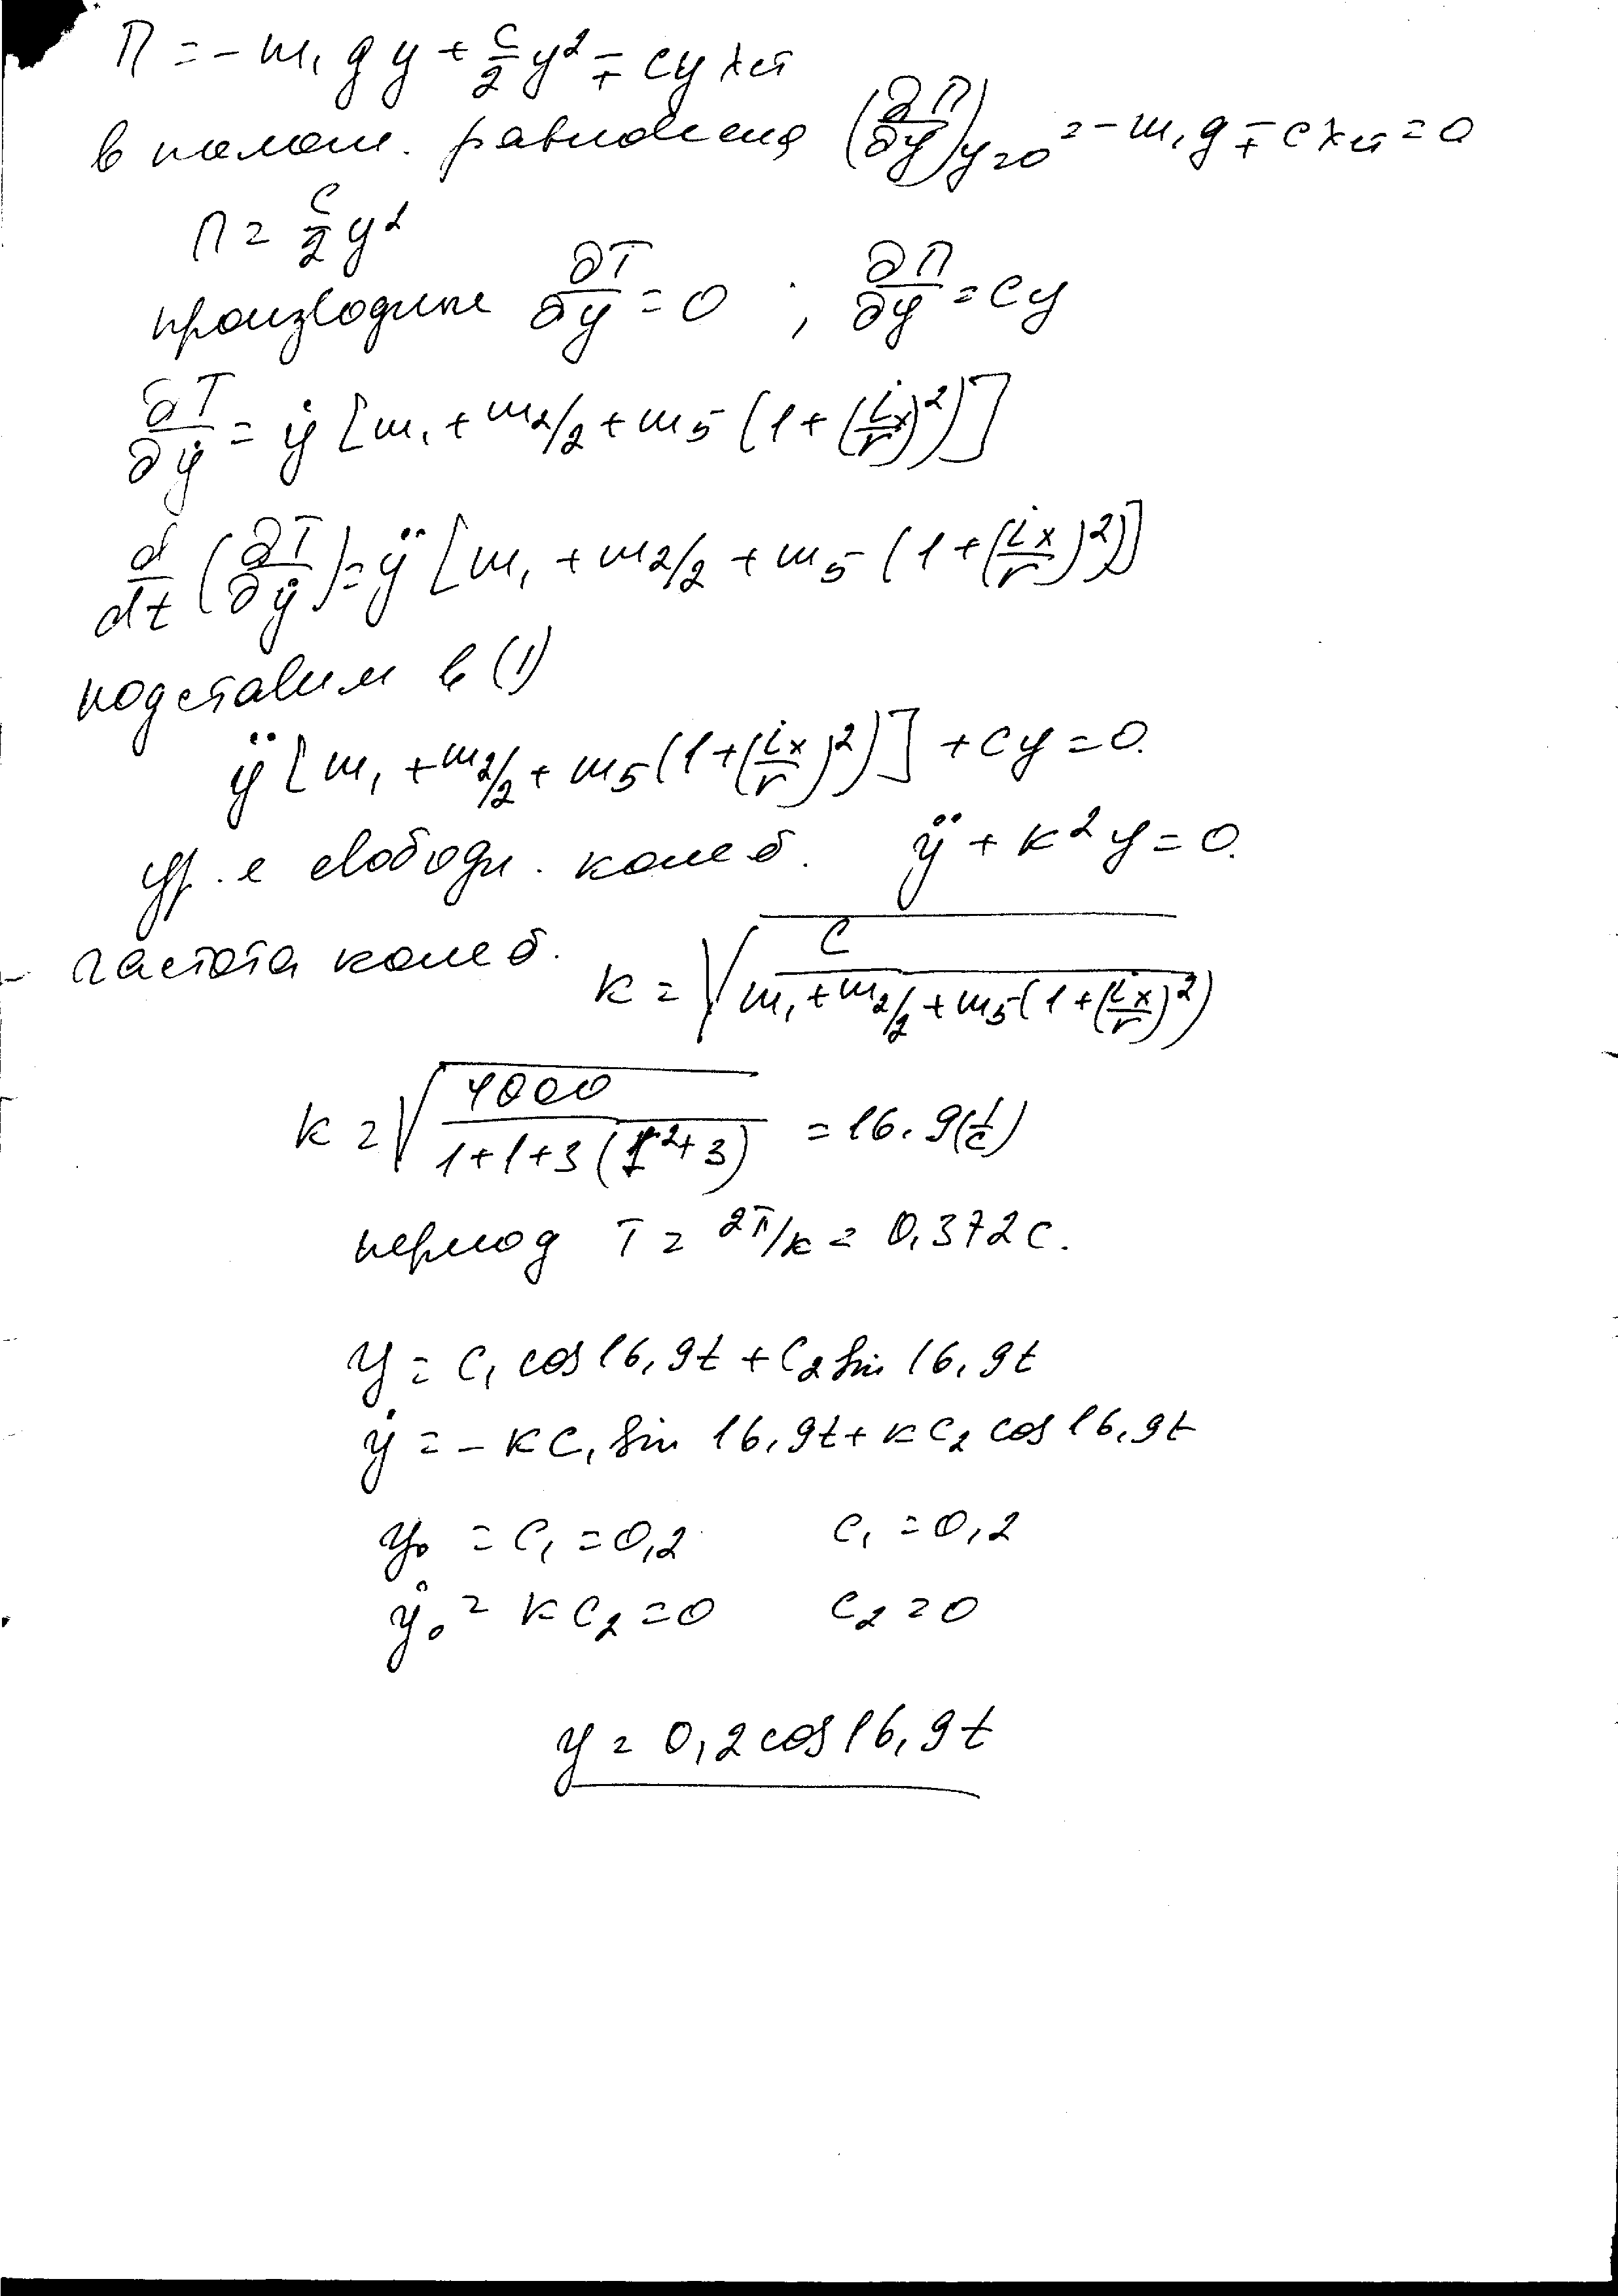 П = - m₁ g y + c/2 y² ∓ c y λст
в полож. равновесия (∂П/∂y)y=0 = - m₁ g ∓ c λст = 0
П = c/2 y²
производные ∂T/∂y = 0 ; ∂П/∂y = cy
∂T/∂ẏ = ẏ [m₁ + m₂/2 + m₅ (1 + (iₓ/r)²)]
d/dt (∂T/∂ẏ) = ÿ [m₁ + m₂/2 + m₅ (1 + (iₓ/r)²)]
подставим в (1)
ÿ [m₁ + m₂/2 + m₅ (1 + (iₓ/r)²)] + cy = 0.
ур. е свободн. колеб. ÿ + k² y = 0.
частота колеб. k = √(c/(m₁ + m₂/2 + m₅ (1 + (iₓ/r)²)))
k = √(4000/(1+1+3(1²+3))) = 16,9 (1/c)
период T = 2π/k = 0,372 c.
y = C₁ cos 16,9t + C₂ sin 16,9t
ẏ = - k C₁ sin 16,9t + k C₂ cos 16,9t
y₀ = C₁ = 0,2 C₁ = 0,2
ẏ₀ = k C₂ = 0 C₂ = 0
y = 0,2 cos 16,9t